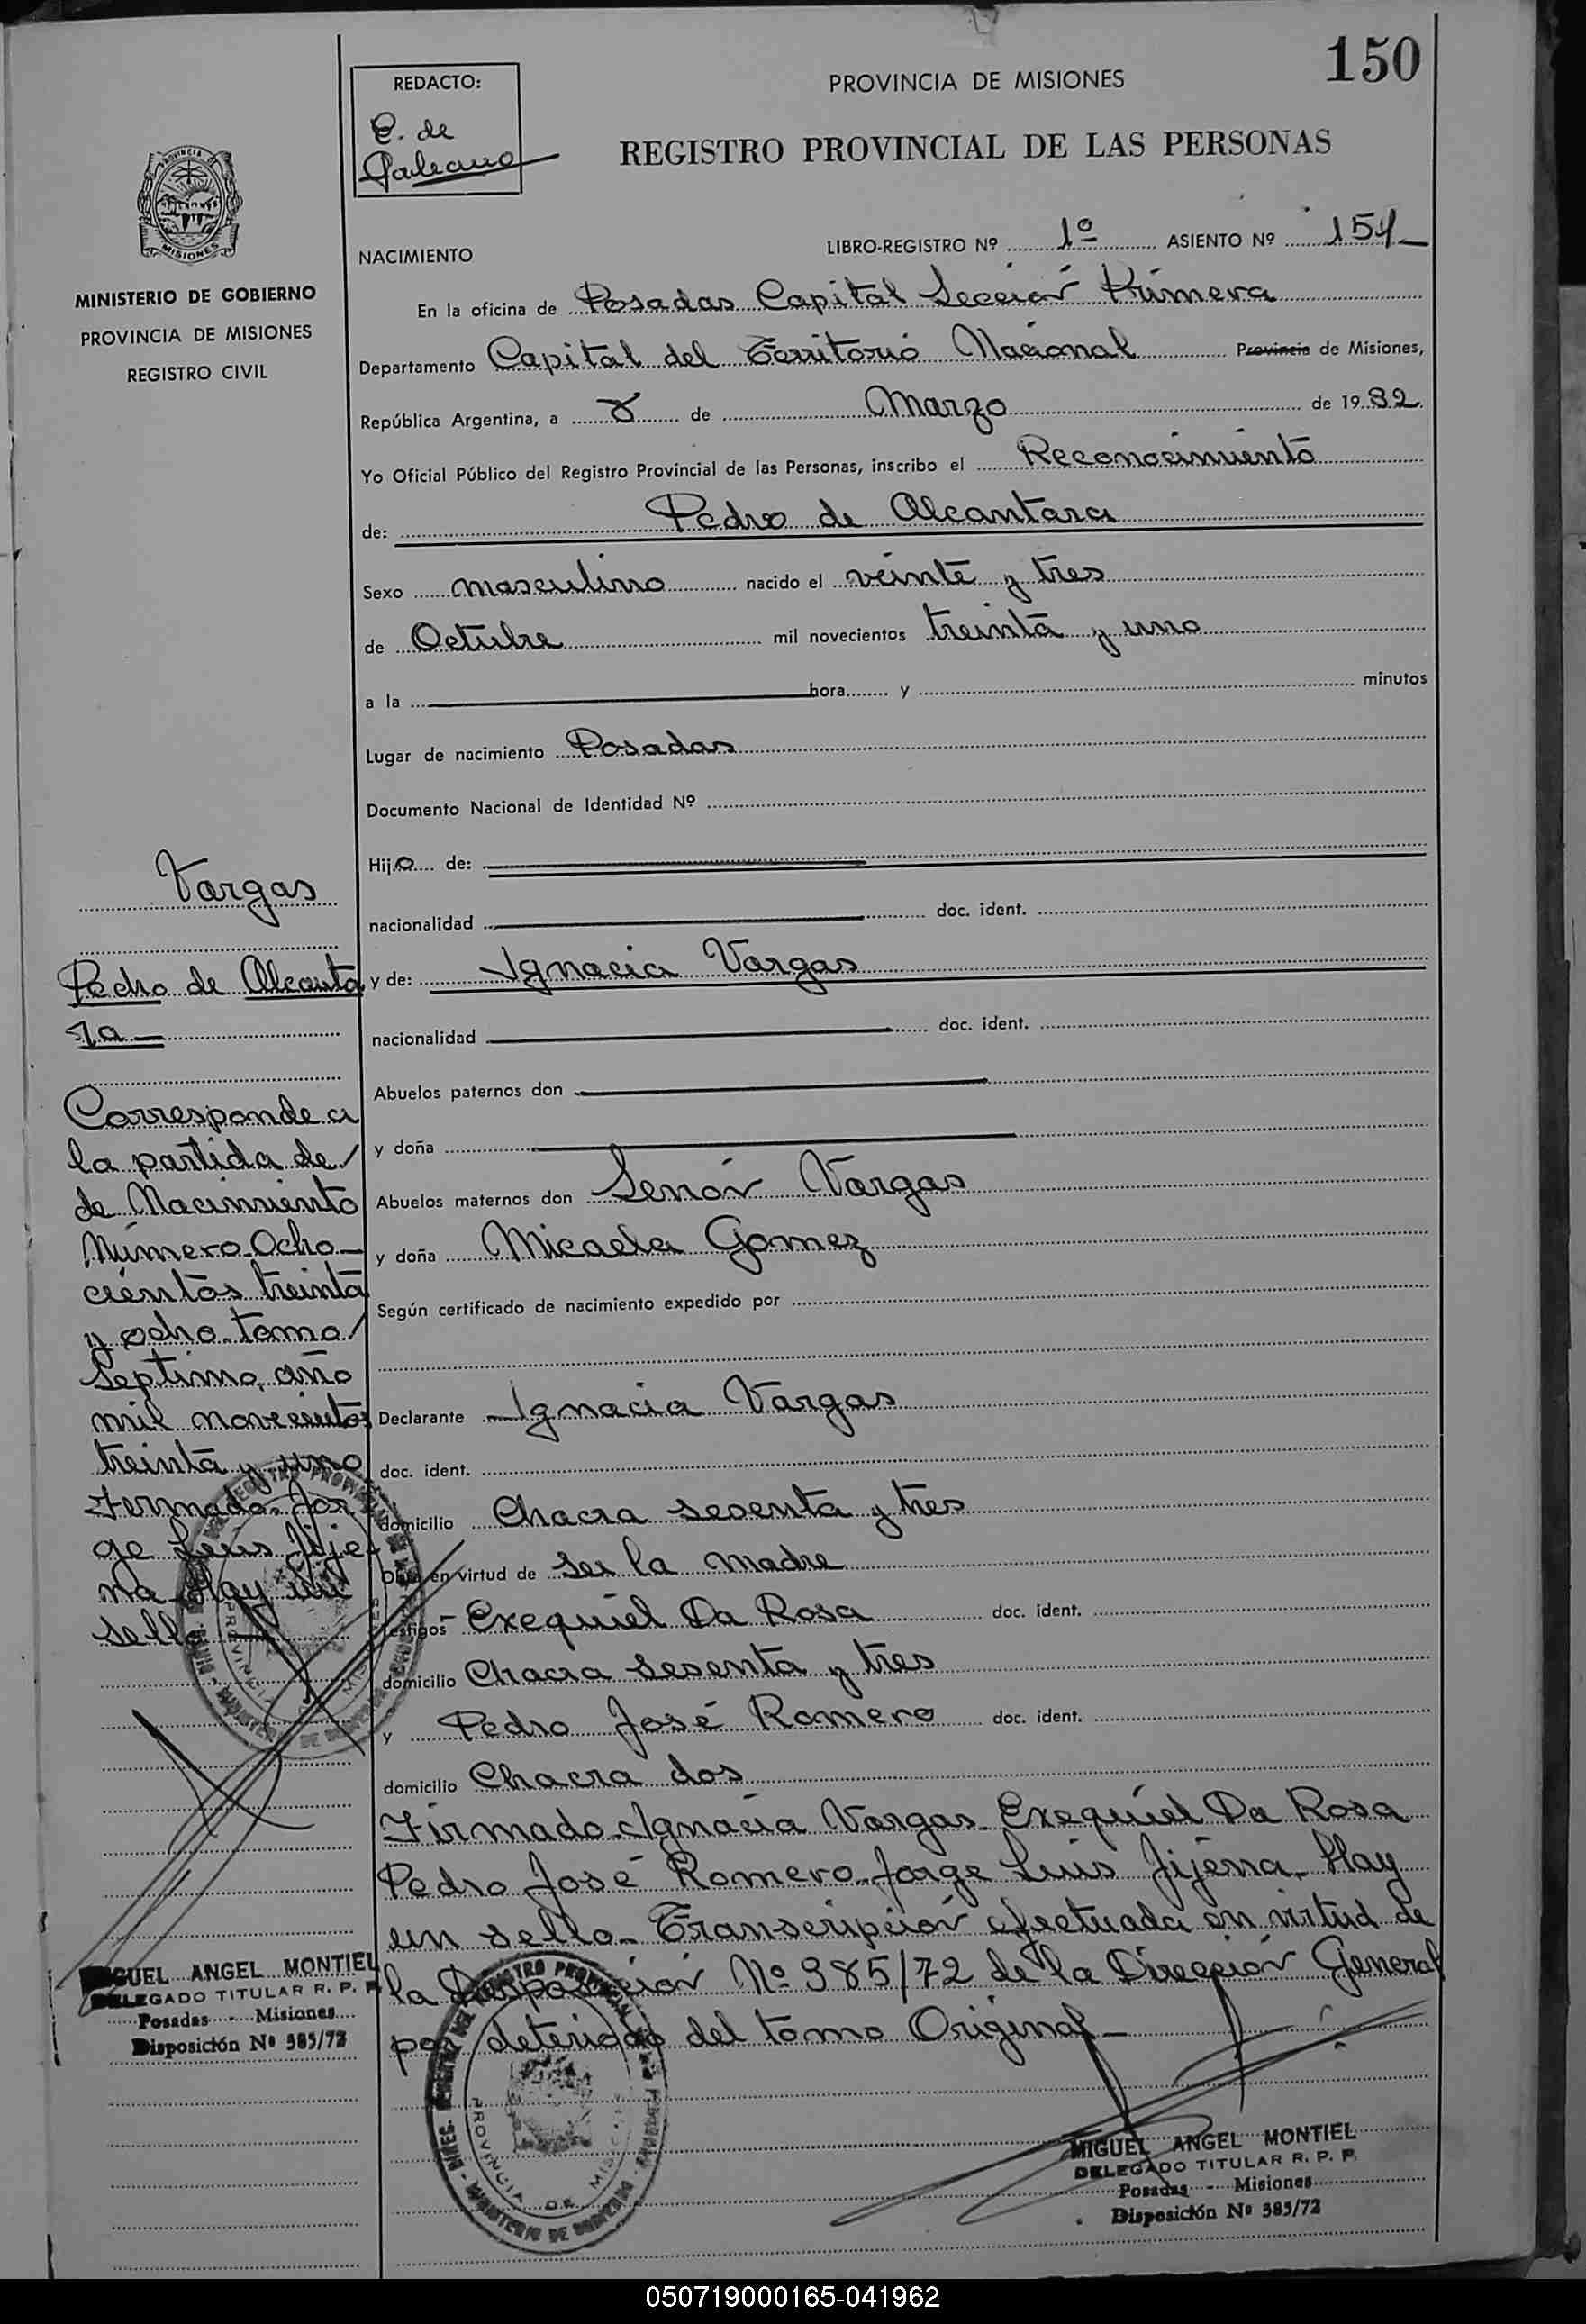 150
REDACTO:
E. de
Galeano
PROVINCIA DE MISIONES
REGISTRO PROVINCIAL DE LAS PERSONAS
PROVINCIA DE
MISIONES
MINISTERIO DE GOBIERNO
PROVINCIA DE MISIONES
REGISTRO CIVIL
NACIMIENTO
LIBRO-REGISTRO Nº 1º ASIENTO Nº 151
En la oficina de Posadas Capital Sección Primera
Departamento Capital del Territorio Nacional Provincia de Misiones,
República Argentina, a 8 de Marzo de 1932
Yo Oficial Público del Registro Provincial de las Personas, inscribo el Reconocimiento
de: Pedro de Alcantara
Sexo masculino nacido el veinte y tres
de Octubre mil novecientos treinta y uno
a la hora y minutos
Lugar de nacimiento Posadas
Documento Nacional de Identidad Nº
Hijo de:
nacionalidad doc. ident.
y de: Ignacia Vargas
nacionalidad doc. ident.
Abuelos paternos don
y doña
Abuelos maternos don Senór Vargas
y doña Micaela Gomez
Según certificado de nacimiento expedido por
Declarante Ignacia Vargas
doc. ident.
domicilio Chacra sesenta y tres
Obra en virtud de ser la madre
Testigos Exequiel Da Rosa doc. ident.
domicilio Chacra sesenta y tres
y Pedro José Romero doc. ident.
domicilio Chacra dos
Firmado Ignacia Vargas Exequiel Da Rosa
Pedro José Romero Jorge Luis Jijena Hay
un sello Transcripción efectuada en virtud de
la Disposición Nº 385/72 de la Dirección General
por deterioro del tomo Original
Vargas
Pedro de Alcanta
ra
Corresponde a
la partida de
de Nacimiento
Número Ocho
cientos treinta
y ocho tomo
Septimo, año
mil novecientos
treinta y uno
Firmado Jor
ge Luis Jije
na Hay un
sello
MIGUEL ANGEL MONTIEL
DELEGADO TITULAR R. P. P.
Posadas - Misiones
Disposición Nº 385/72
MIGUEL ANGEL MONTIEL
DELEGADO TITULAR R. P. P.
Posadas - Misiones
Disposición Nº 385/72
PROVINCIA DE MISIONES
MINISTERIO DE GOBIERNO
050719000165-041962